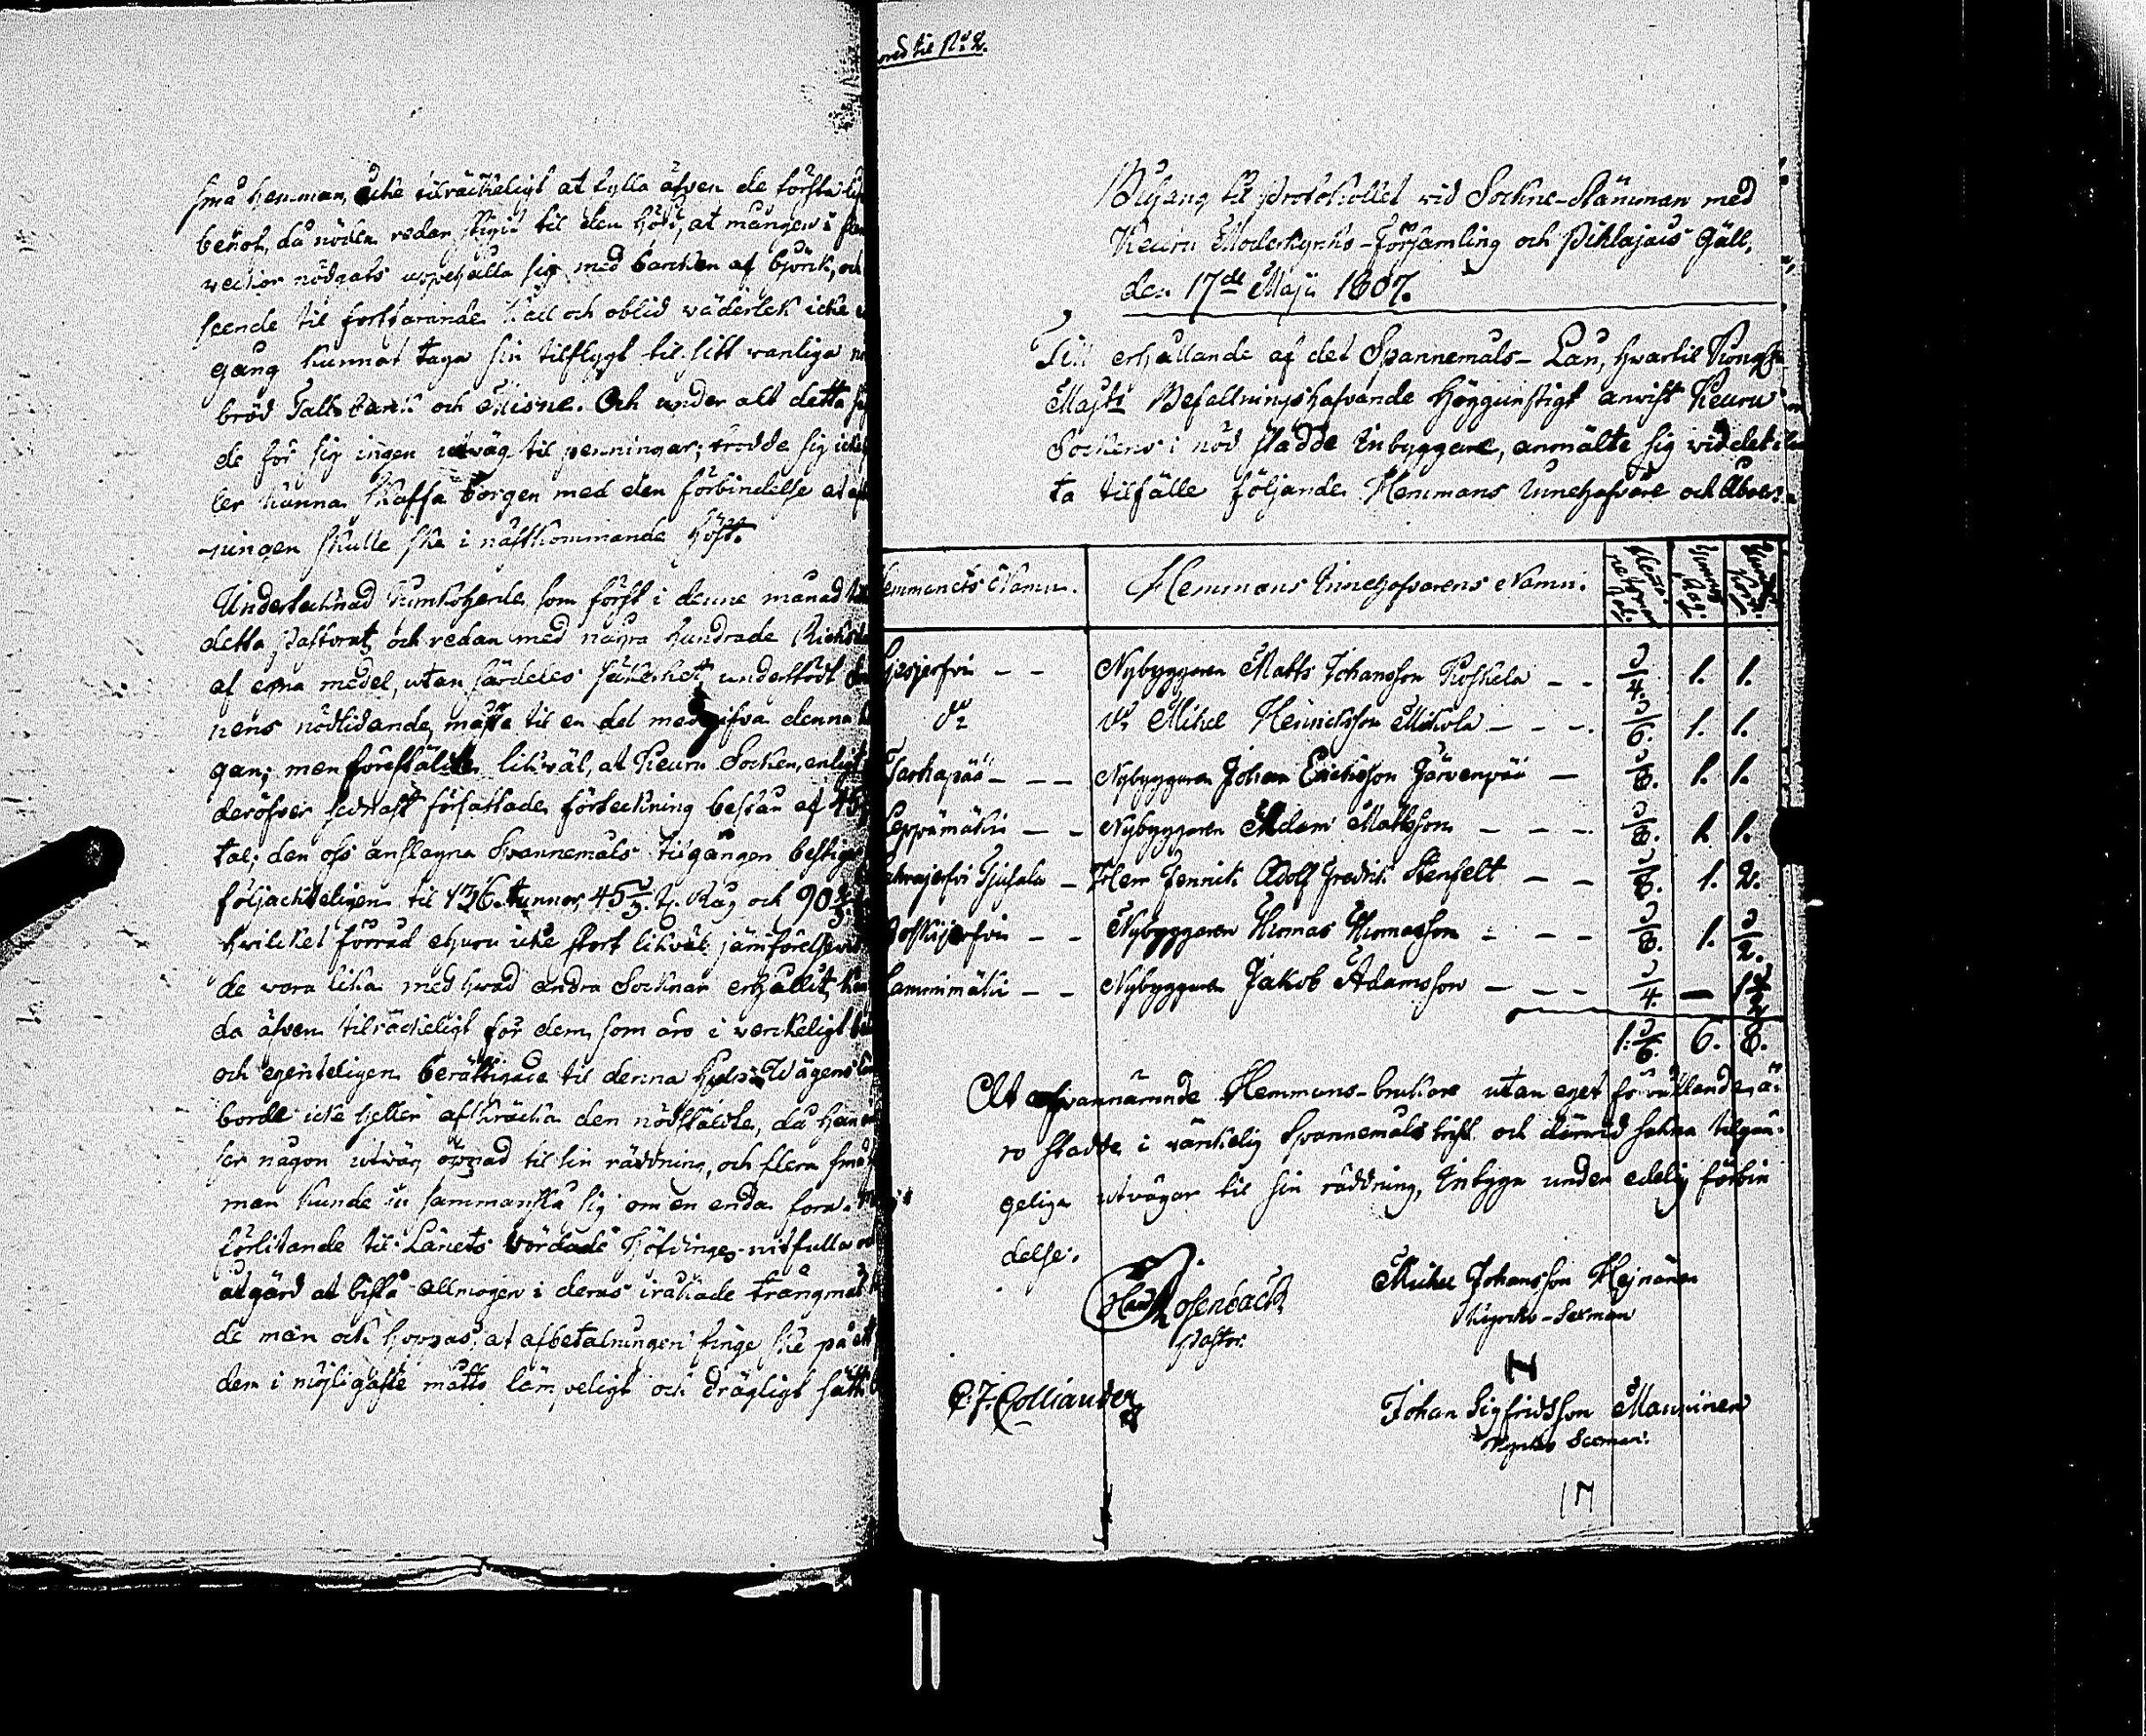 små hemman, icke tilräckeligt at fylla äfven de första
behof, då nöden redan stigit til den högd, at mången i
veckor nödgats uppehålla sig med barken af björk, och
seende til fortfarande käll och oblid väderlek icke
gång kunnat taga sin tilflygt til sitt vanliga
bröd Tallbark och Misne. Och under alt detta
de för sig ingen utväg til penningar; trodde sig icke
ler kunna skaffa borgen med den förbindelse at
ningen skulle ske i nästkommande höst.
Undertecknad Kyrkoherde, som först i denne månad
detta Pastorat, och redan med några hundrade Riksd
af egna medel, utan särdeles säkerhet, understödt
nens nödlidande, måste til en del medgifva denna
gan; men föreställte likväl, at Keuru Socken, enligt
deröfver sednast författade förteckning bestån af 45
tal; den oss anslagna Spannemåls tilgången bestiger
följackteligen til 136 tunnor, 45 Råg och 90
hvilket förråd ehuru icke stort likväl jämförelsevis
de vara lika med hvad andra Socknar erhållit,
da äfven tilräckeligt för dem, som äro i verkeligt
och egenteligen berättigade til denna Wägens
borde icke heller afskräcka den nödstälde, då han
ser någon utväg öpnad til sin räddning, och flera små
man kunde ju sammanslå sig om en enda
förlitande til Länets vördade Höfdinges nitfulla
åtgärd at bistå Allmogen i deras iråkade trångmål
de man ock hoppas, at afbetalningen finge ske på ett
dem i möjligaste måtto lämpeligt och drägligt sätt
til No 2.
Bihang til Protokollet vid Sockne-Stämman med
Keuru Moderkyrko-församling och Pihlajavis Gäll,
den 17de Maji 1807.
Till erhållande af det Spannemåls-Lån, hvartil Kongl
Majts Befallningshafvande Höggunstigt anvist Keuru
Sockens i nöd stadde Inbyggare, anmälte sig vid det
ta tilfälle följande Hemmans Innehafvare och Åboer
Hemmanets Namn. Hemmans Innehafvarens Namn. Råg.
Nybyggaren Matts Johansson Koskela - - 1/4. 1. 1.
Do Do Mikel Henricksson Mikola - - - 1/6. 1. 1.
Tarhapää - - - Nybyggaren Johan Ericksson Järvenpää - 1/8. 1. 1.
Leppämäki - - Nybyggaren Adam Mattsson - - - 1/8. 1. 1.
Herr Fenrick Adolf Fredrik Stenfelt - - 1/8. 1. 2.
Nybyggaren Thomas Thomasson - - - 1/8. 1. 1/2.
Lamminmäki - - Nybyggaren Jakob Adamsson - - - 1/4. - 1 1/2
1 1/6. 6. 8.
At ofvannämnde Hemmans-brukare utan eget förvållande ä-
ro stadde i vänkelig Spannemåls brist och därvid sakna tilgän-
gelige utvägar til sin räddning, Intyga under edelig förbin
delse.
Rosenback
Pastor.
Mickel Johansson Hejnänen
Kyrko-Sexman
C. J. Colliander
Johan Sigfridsson Manninen
Kyrko Sexman.